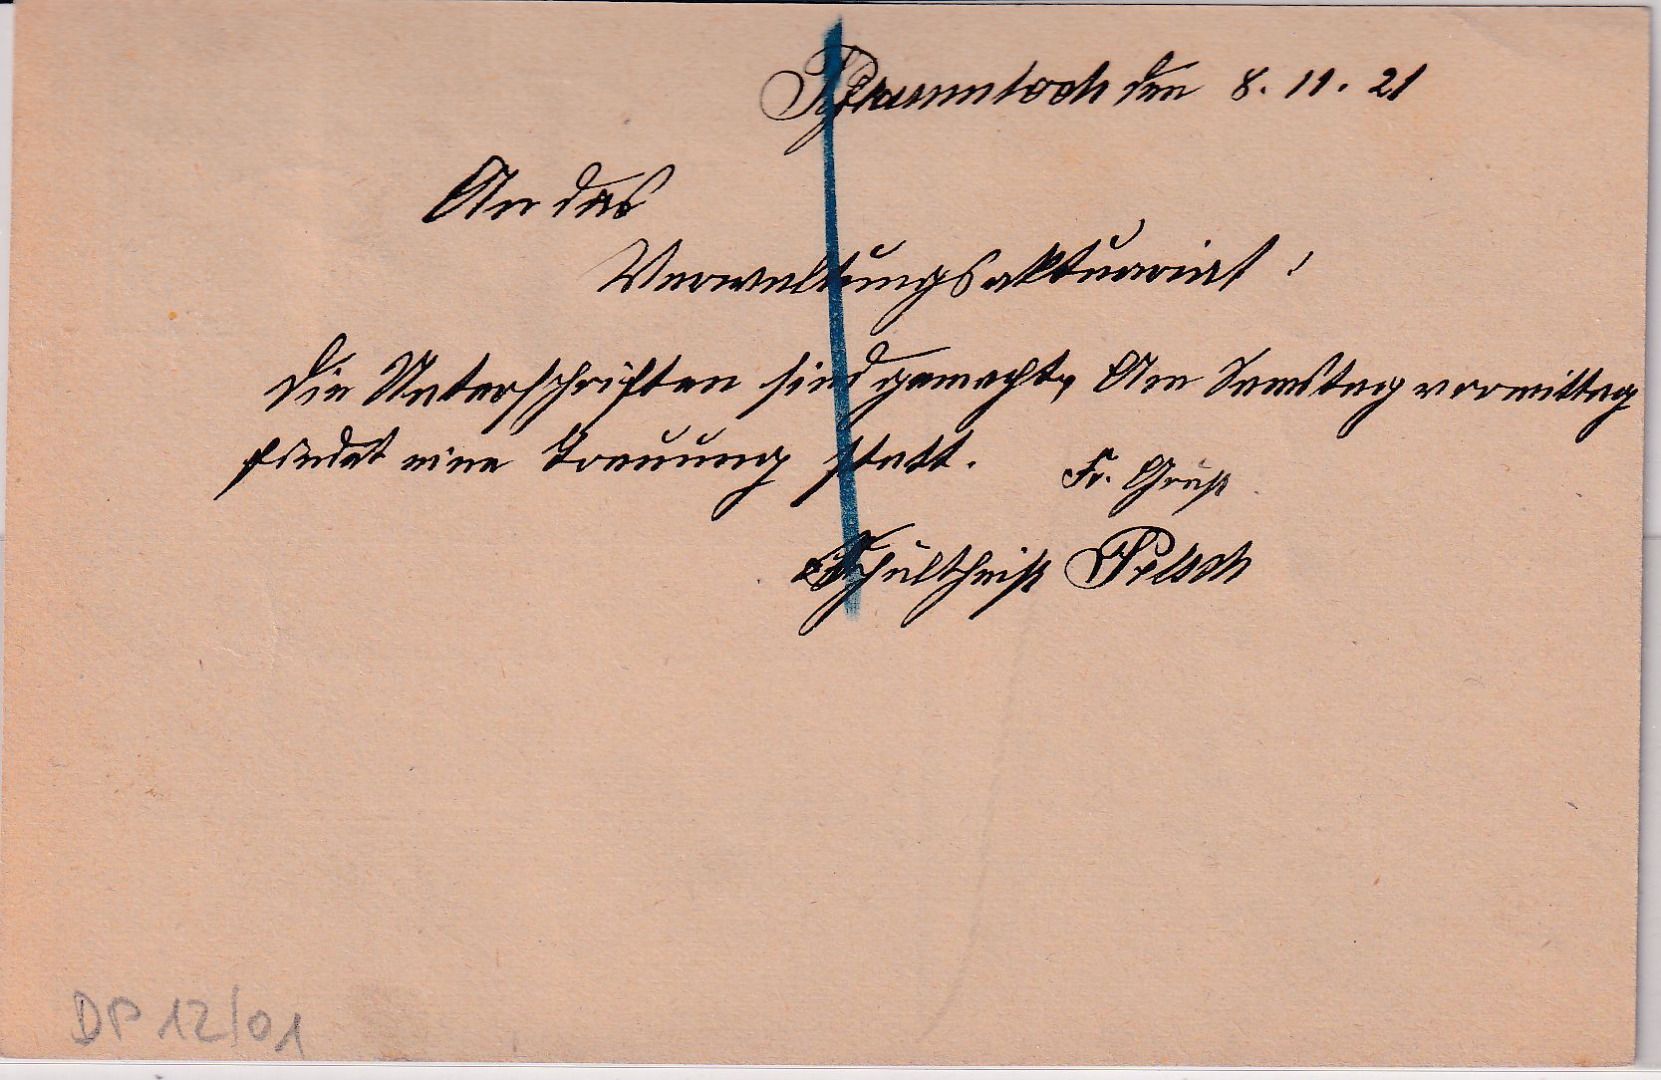 den 8. 11. 21
An das
Verwaltungsaktuariat!
Die Unterschriften sind gemacht, Am Samstag vormittag
findet eine Trauung statt. Fr. Gruß
Schultheiß
DP 12/01